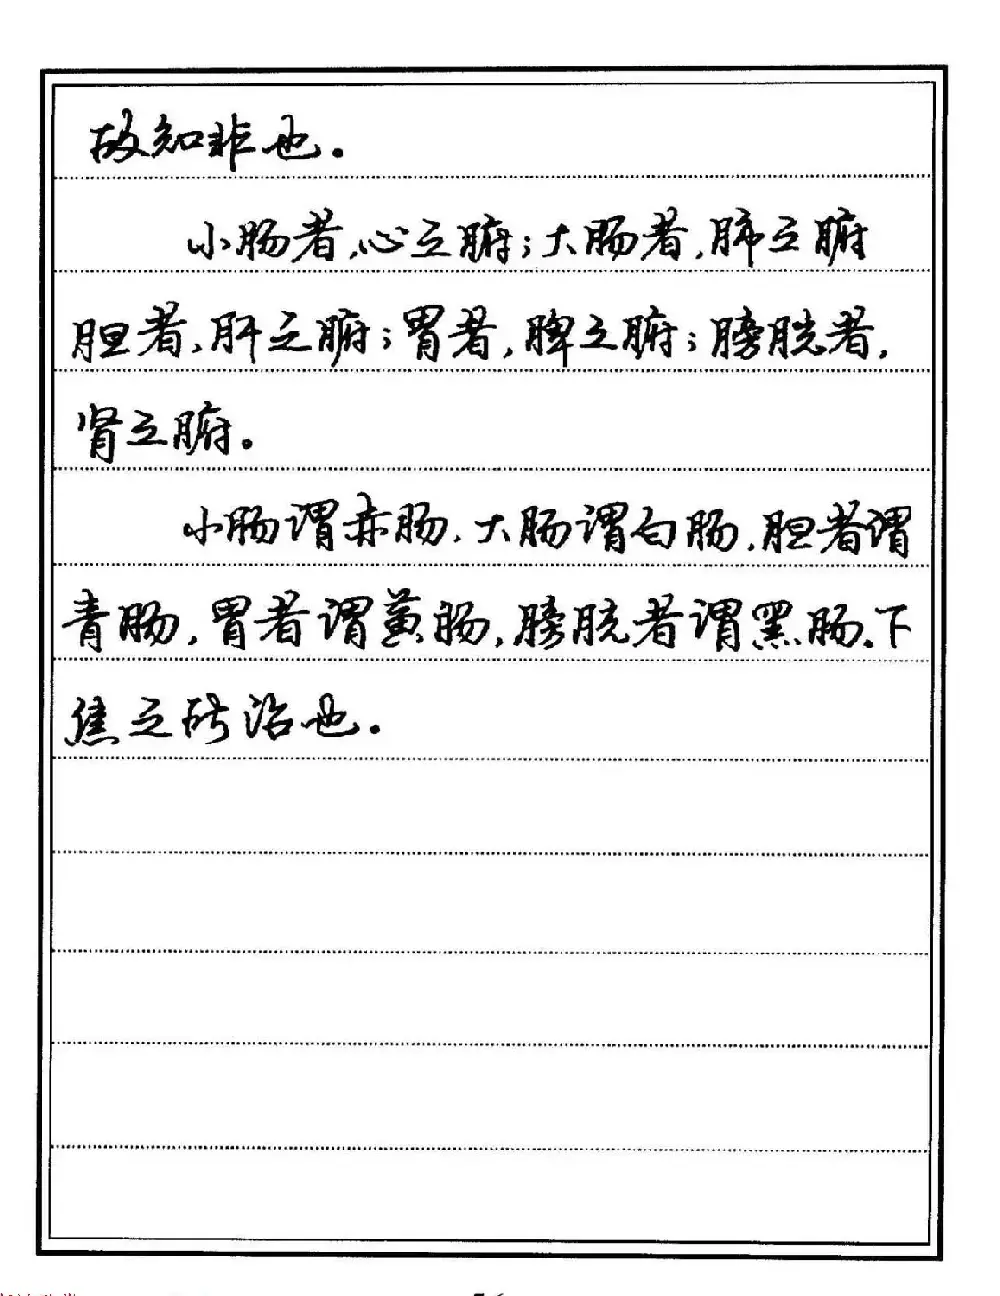 故知非也。
小肠者,心之腑;大肠者,肺之腑
胆者、肝之腑;胃者,脾之腑;膀胱者,
肾之腑。
小肠谓赤肠,大肠谓白肠,胆者谓
青肠,胃者谓黄肠,膀胱者谓黑肠。下
焦之所治也。